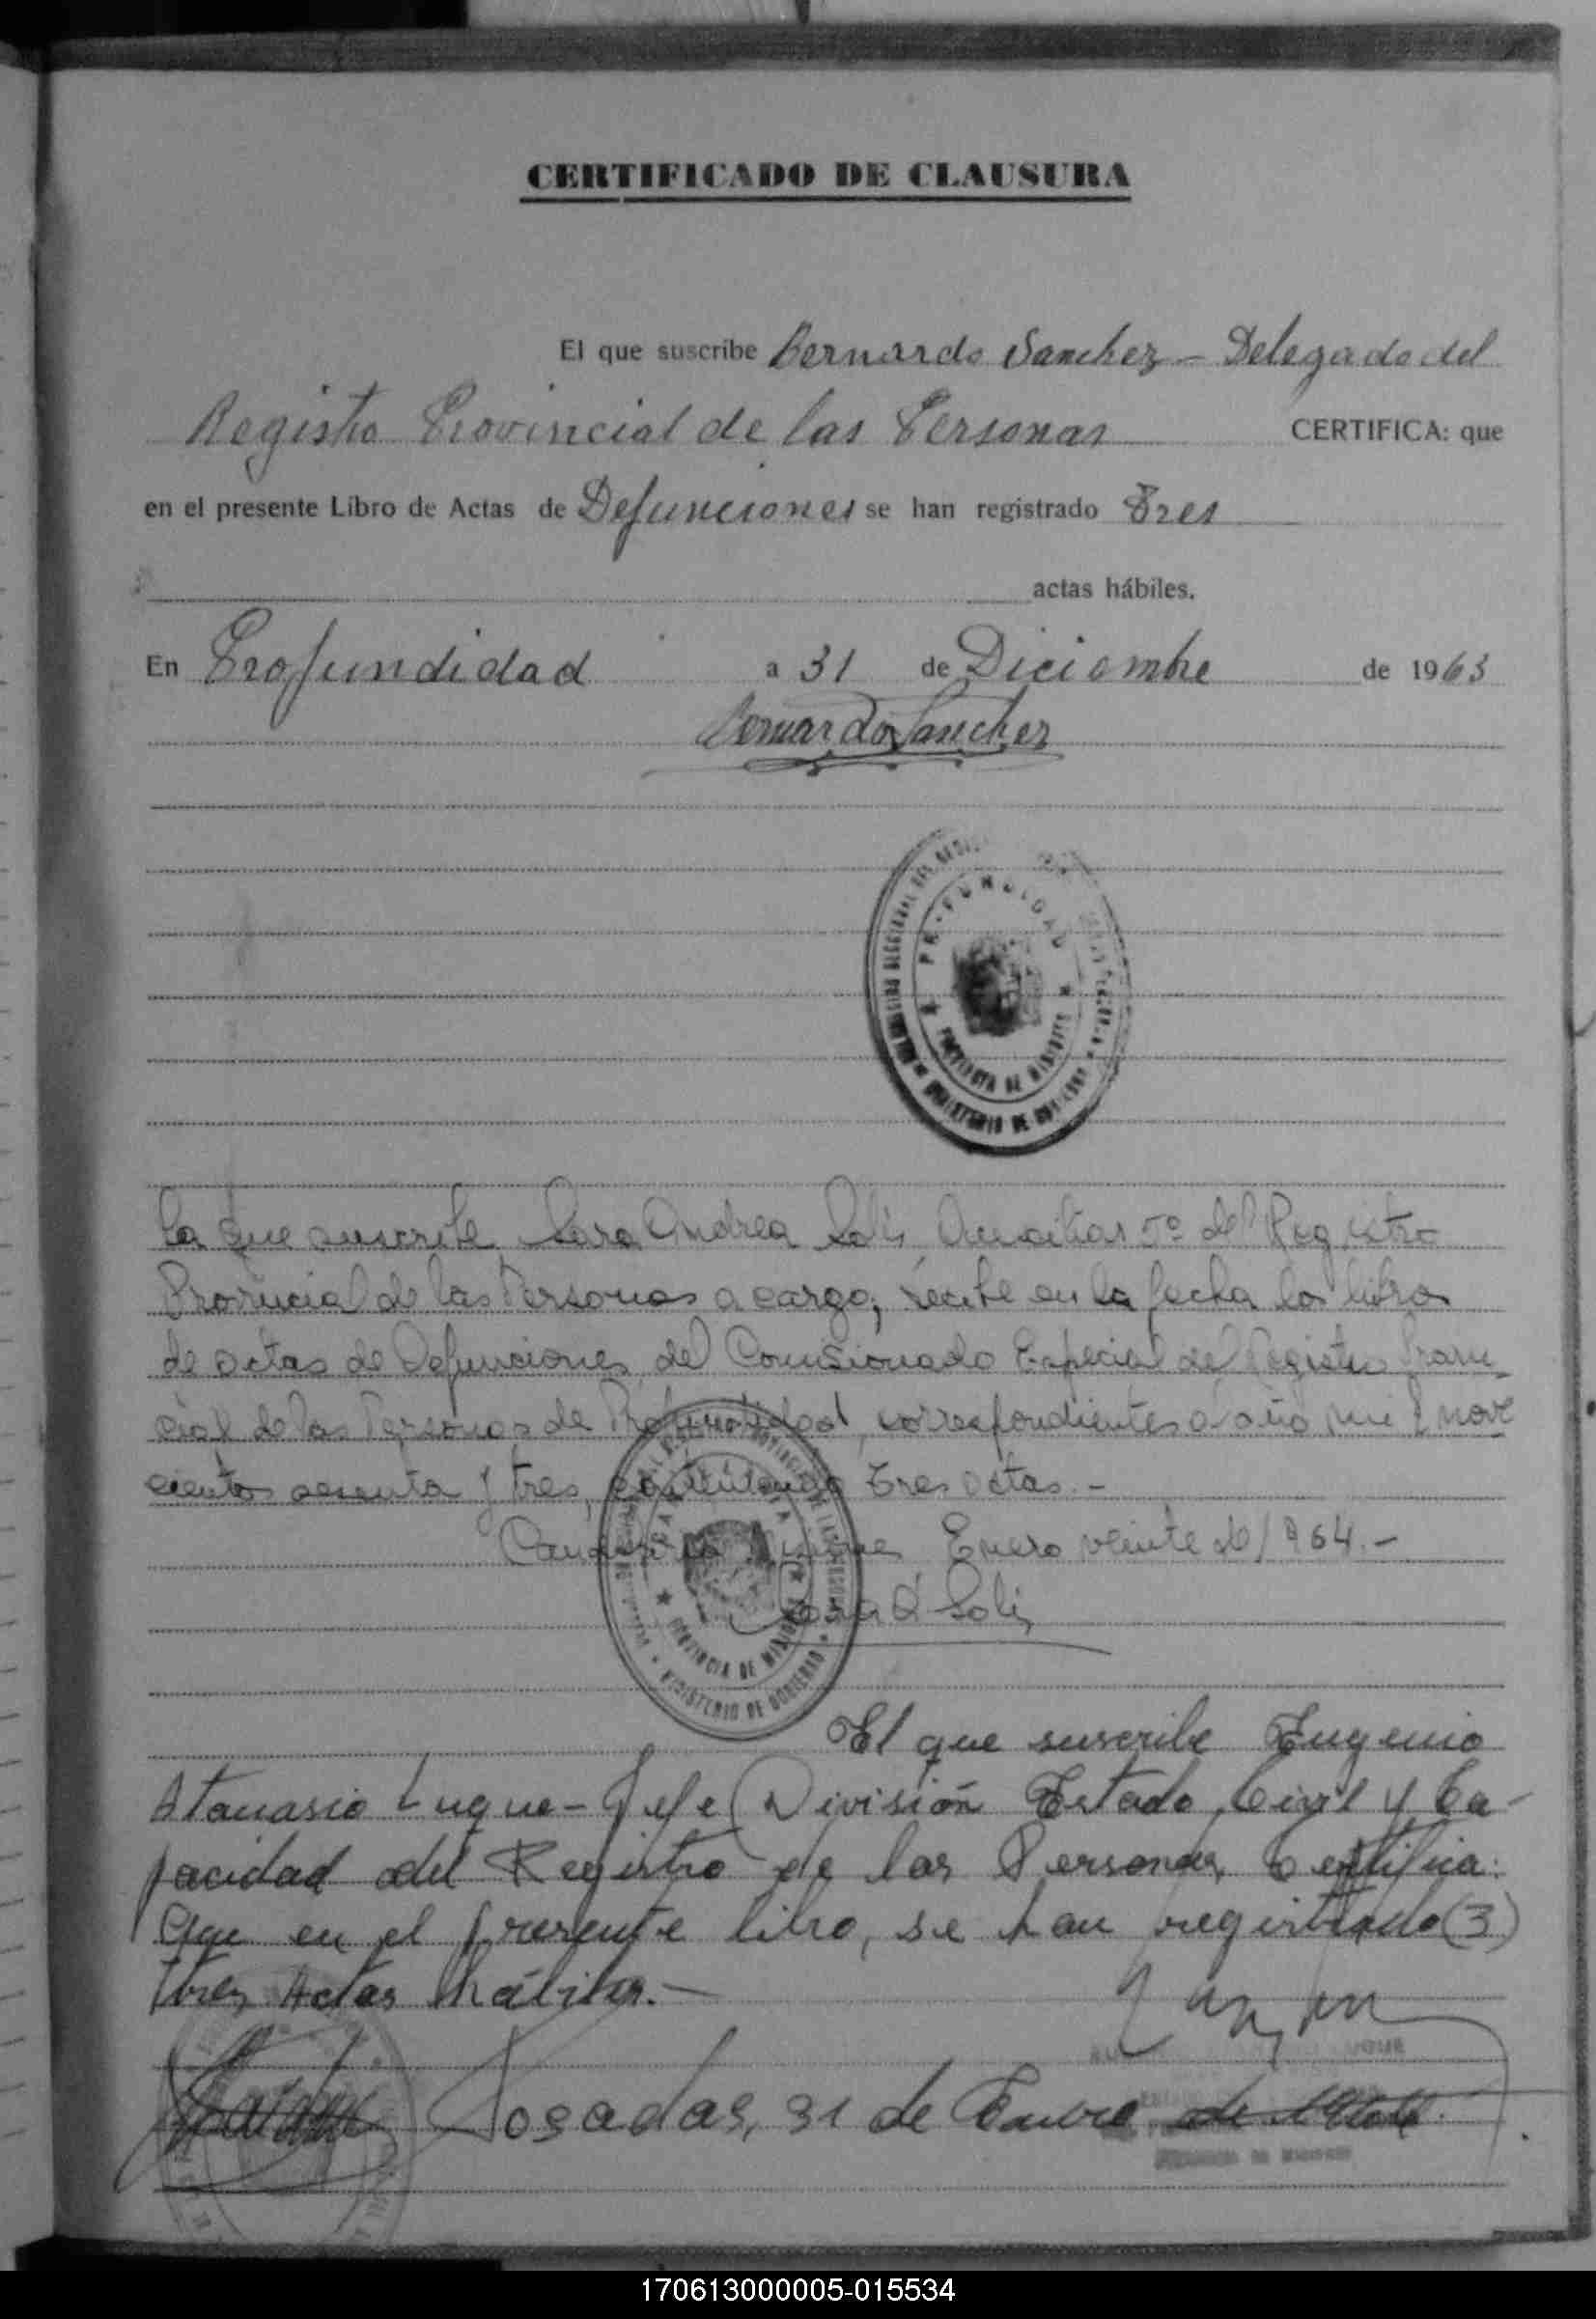 CERTIFICADO DE CLAUSURA
El que suscribe Bernardo Sanchez - Delegado del
Registro Provincial de las Personas CERTIFICA: que
en el presente Libro de Actas de Defunciones se han registrado Tres
actas hábiles.
En Profundidad a 31 de Diciembre de 1963
Bernardo Sanchez
PROFUNDIDAD
PROVINCIA DE MISIONES
MINISTERIO DE GOBIERNO
La que suscribe Sara Andrea Solis Auxiliar 5º del Registro
Provincial de las Personas a cargo, recibe en la fecha los libros
de actas de Defunciones del Comisionado Especial del Registro Provin
cial de las Personas de Profundidad, correspondientes a año mil nove
cientos sesenta y tres, conteniendo tres actas.-
Candelaria Misiones Enero veinte de 1964.-
Sara A Solis
PROVINCIA DE MISIONES
MINISTERIO DE GOBIERNO
El que suscribe Eugenio
Atanasio Luque - Jefe División Estado Civil y Ca-
pacidad del Registro de las Personas, Certifica:
Que en el presente libro, se han registrado (3)
tres Actas hábiles.-
Posadas, 31 de Enero de
170613000005-015534